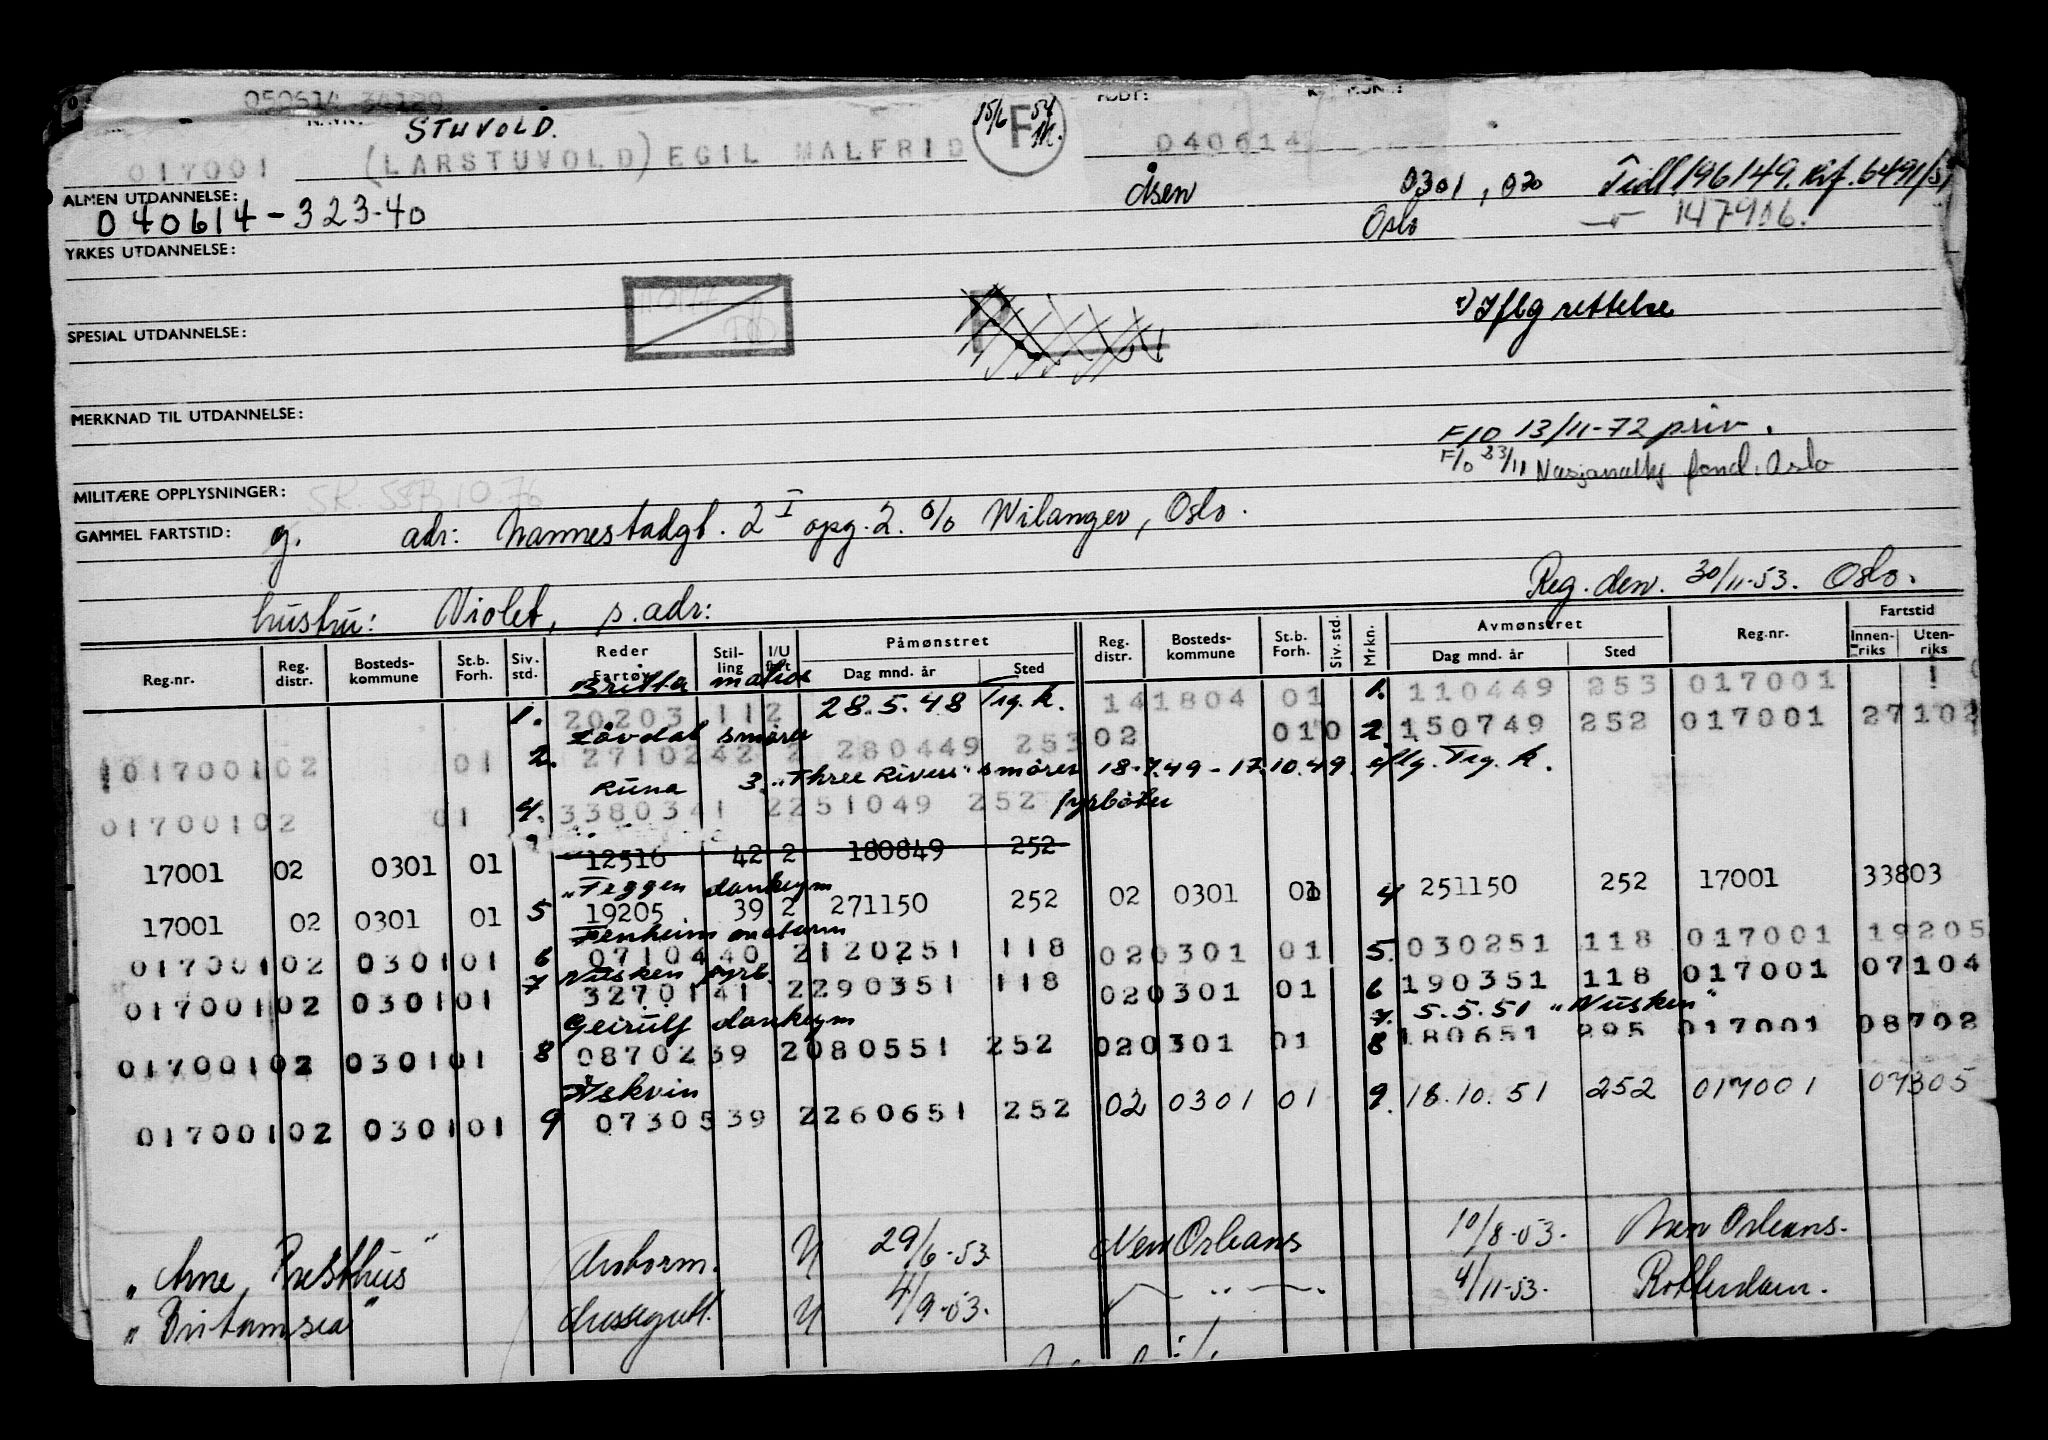 050614 34129
NAVN: FØDT:
STUVOLD. 15/6 F 54
017001 (LARSTUVOLD) EGIL MALFRID 040614
ALMEN UTDANNELSE: Åsen 0301, 020 Tidl 196149. Rif. 6491/51
040614-323-40 Oslo 147906.
YRKES UTDANNELSE:
SPESIAL UTDANNELSE: x) Iflg rettelse
MERKNAD TIL UTDANNELSE:
F/O 13/11-72 priv.
F/o 23/11 fond. Oslo
MILITÆRE OPPLYSNINGER:
GAMMEL FARTSTID: g. adr: Nannestadgt. 2 I opg. 2. c/o Wilanger, Oslo.
Reg. den. 30/11-53. Oslo.
hustru: Violet, s. adr:
Reg.nr. Reg. distr. Bosteds-kommune St.b. Forh. Siv. std. Reder Fartøy Stil-ling I/U fart Påmønstret Dag mnd. år Sted Reg. distr. Bosteds-kommune St.b. Forh. Siv. std. Mrkn. Avmønstret Dag mnd. år Sted Reg.nr. Fartstid Innen-riks Uten-riks
Britta matros
1. 20203 112 28.5.48 Trg. k. 141804 01 1. 110449 253 017001
Løvdal smører
01700102 01 2. 2710242 2 280449 253 02 010 2 150749 252 017001 27102
Runa 3. "Three Rivers" smører 18-7.49 - 17.10.49. iflg. Trg. k.
01700102 01 4. 3380341 2251049 252 fyrbøter
17001 02 0301 01 12516 42 2 180849 252
"Teggen dankeym
17001 02 0301 01 5 19205 39 2 271150 252 02 0301 01 4 251150 252 17001 33803
Fenheim motorm
01700102 0301 01 6 0710440 2120251 118 020301 01 5. 030251 118 017001 19205
Nusken fyrb.
01700102 0301 01 7 3270141 2290351 118 020301 01 6 190351 118 017001 07104
7. 5.5.51 "Nusken"
Geirulf dankeym
01700102 0301 01 8 0870239 2080551 252 020301 01 8 180651 295 017001 08702
Askvin
01700102 0301 01 9 0730539 2260651 252 02 0301 01 9. 18.10.51 252 017001 07305
"Arne Presthus" U 29/6-53. New Orleans 10/8-53. New Orleans.
"Britamsea" U 4/9-53. — " — 4/11-53. Rotterdam.